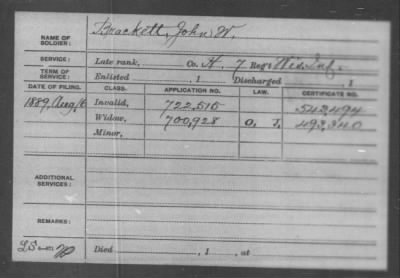 NAME OF SOLDIER: Brackett, John W.
SERVICE: Late rank, Co. H. 7 Reg't Wis. Inf.
TERM OF SERVICE: Enlisted , 1 Discharged , 1
DATE OF FILING. CLASS. APPLICATION NO. LAW. CERTIFICATE NO.
1889, Aug. 16 Invalid, 722,515 543,494
Widow, 700,928 O. J. 493,340
Minor,
ADDITIONAL SERVICES:
REMARKS:
Died , 1 , at